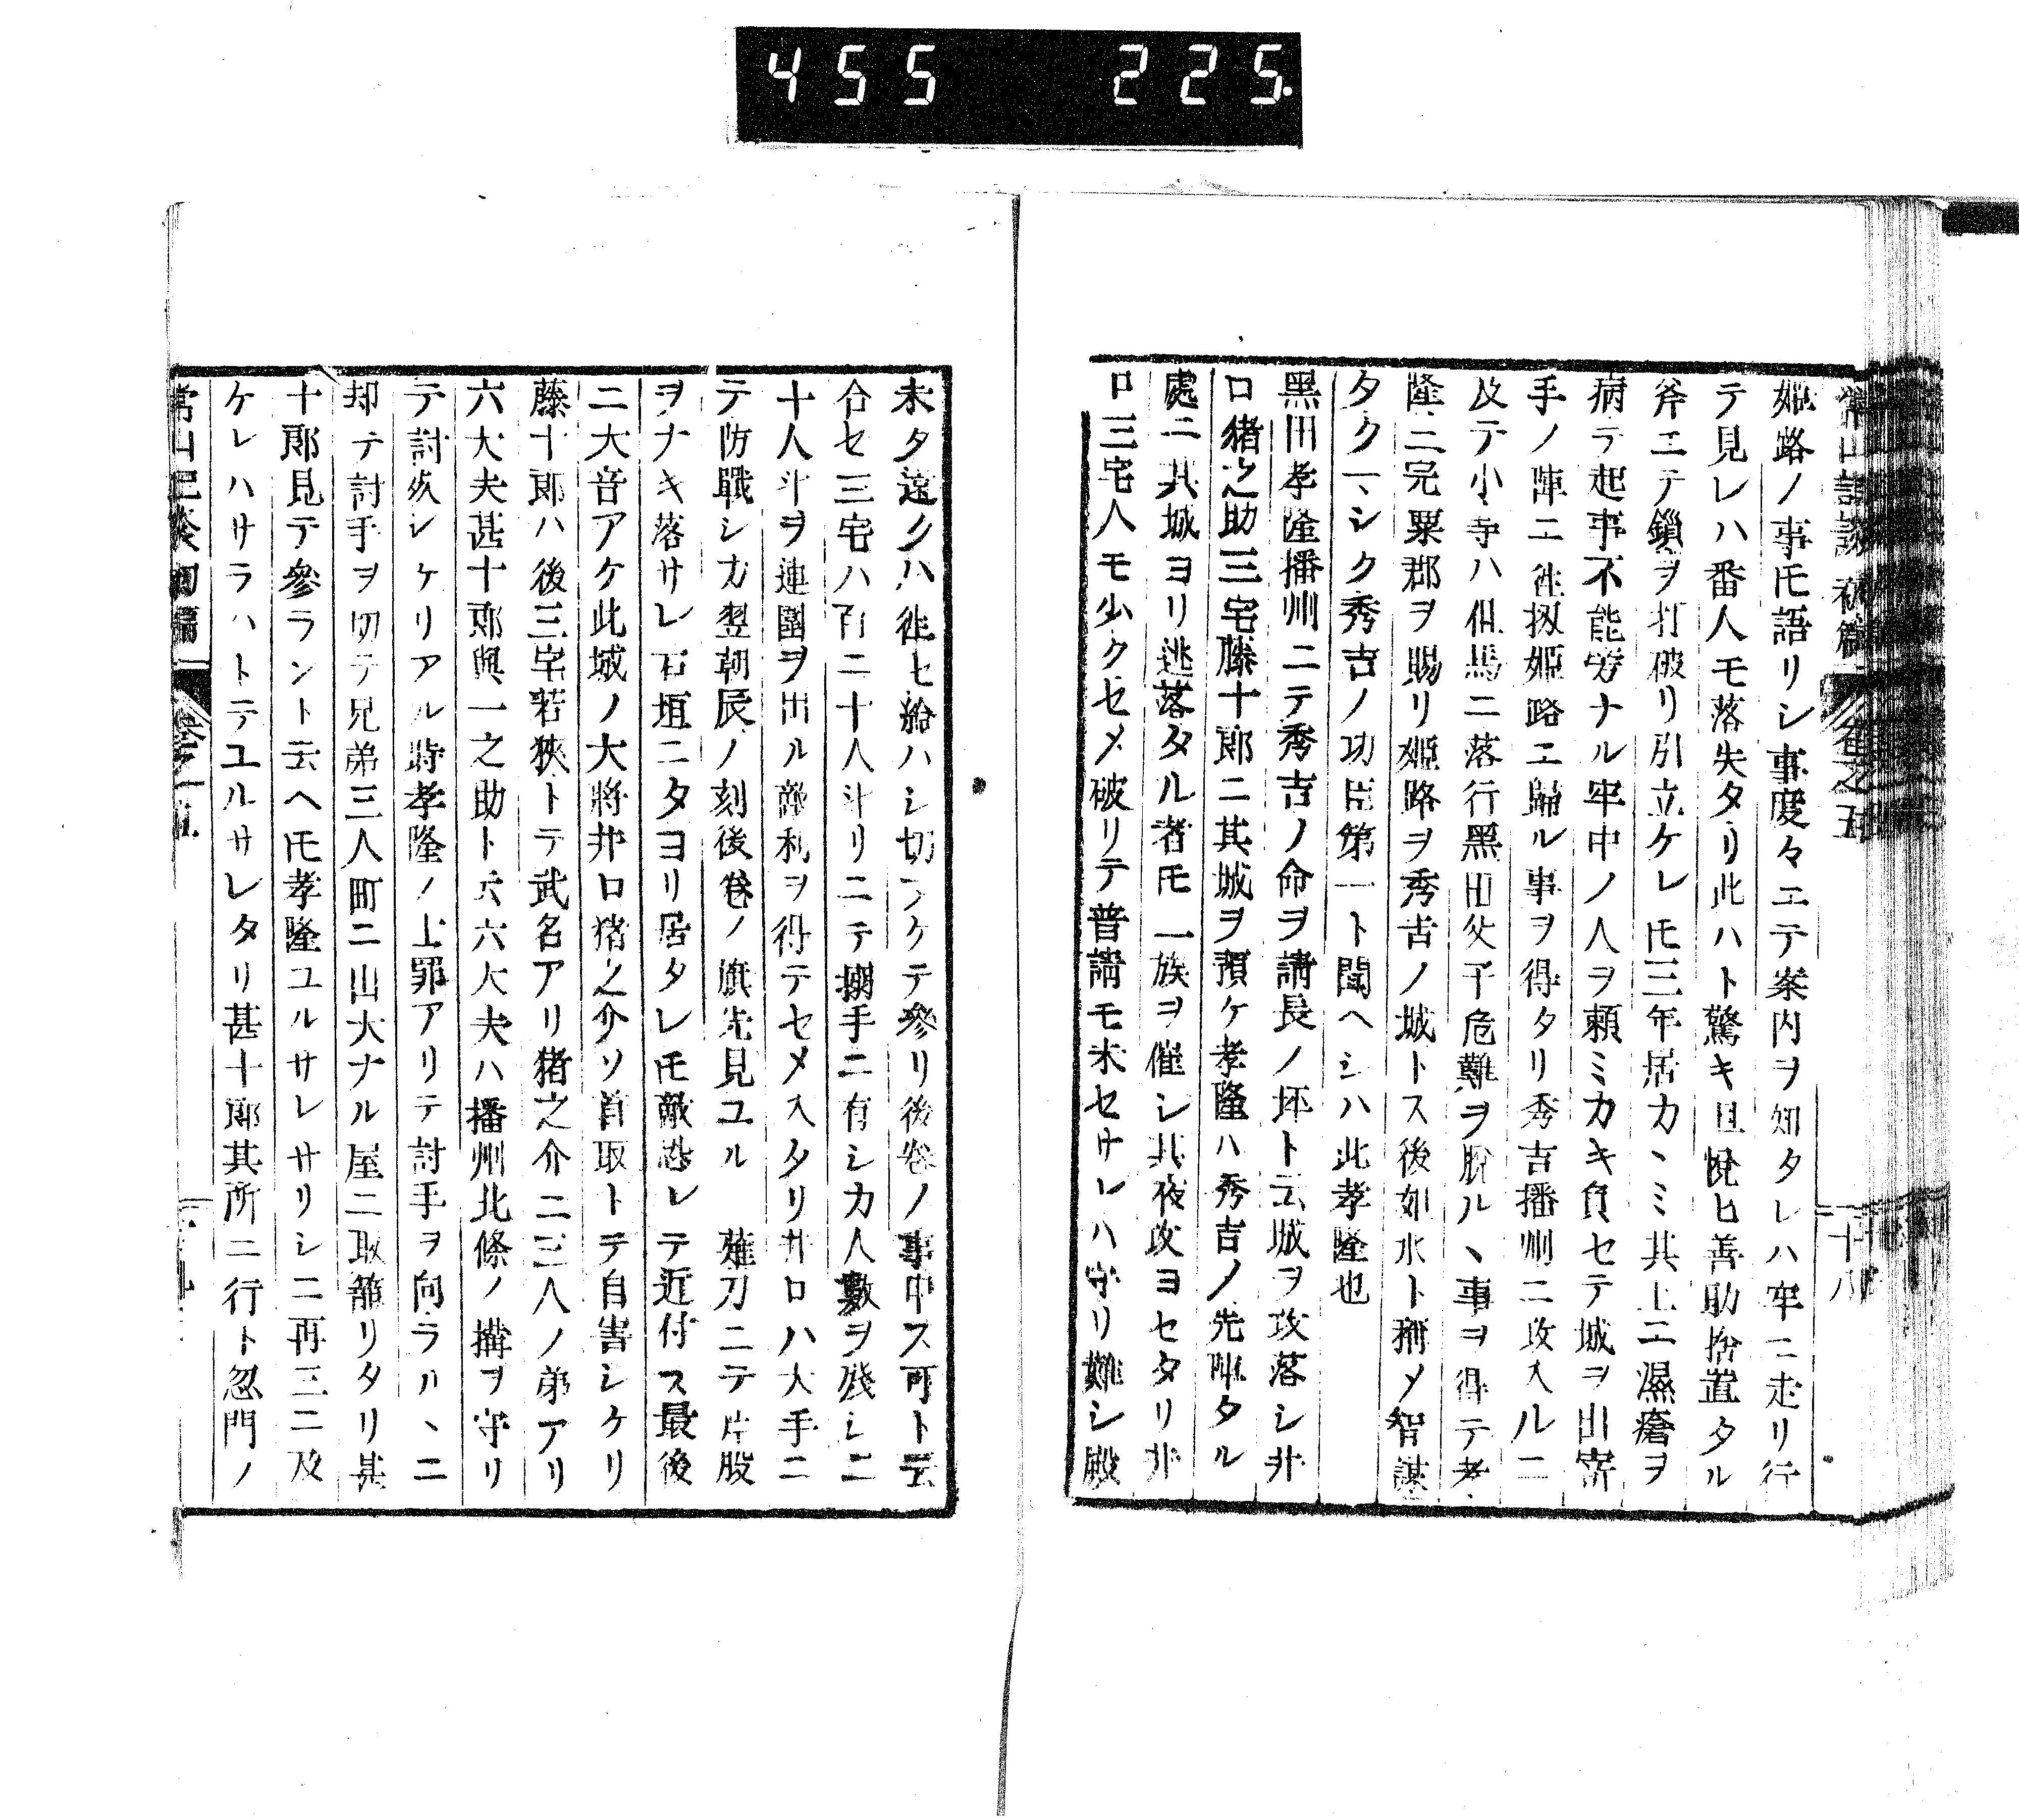 455 225.
常山記談 初篇 卷之五 十八
姫路ノ事𪜈語リシ事度々エテ案内ヲ知タレハ牢ニ走リ行
テ見レハ番人モ落失タリ此ハト驚キ且悦ヒ善助捨置タル
斧エテ鎖ヲ打破リ引立ケレ𪜈三年居カヽミ其上ニ濕瘡ヲ
病テ起事不能旁ナル牢中ノ人ヲ頼ミカキ負セテ城ヲ出寄
手ノ陣ニ徃扨姫路エ歸ル事ヲ得タリ秀吉播州ニ攻入ルニ
及テ小寺ハ但馬ニ落行黑田父子危難ヲ脱ルヽ事ヲ得テ孝
隆ニ完粟郡ヲ賜リ姫路ヲ秀吉ノ城トス後如水ト稱メ智謀
タクマシク秀吉ノ功臣第一ト聞ヘシハ此孝隆也
黑田孝隆播州ニテ秀吉ノ命ヲ請長ノ坪ト云城ヲ攻落シ井
口猪之助三宅藤十郎ニ其城ヲ預ケ孝隆ハ秀吉ノ先陣タル
處ニ其城ヨリ逃落タル者𪜈一族ヲ催シ其夜攻ヨセタリ井
口三宅人モ少クセメ破リテ普請モ未セサレハ守リ難シ殿
未タ遠クハ徃セ給ハシ切ヌケテ參リ後卷ノ事申ス可ト云
合セ三宅ハ百ニ十人斗リニテ搦手ニ有シカ人數ヲ殘シ二
十人斗ヲ連圍ヲ出ル敵利ヲ得テセメ入タリ井口ハ大手ニ
テ防戰シカ翌朝辰ノ刻後卷ノ旗先見ユル 薙刀ニテ片股
ヲナキ落サレ石垣ニタヨリ居タレ𪜈敵恐レテ近付ス最後
ニ大音アケ此城ノ大將井口猪之介ソ首取トテ自害シケリ
藤十郎ハ後三宅若狹トテ武名アリ猪之介ニ三人ノ弟アリ
六大夫甚十郎與一之助ト云六大夫ハ播州北條ノ搆ヲ守リ
テ討死シケリアル時孝隆ノ上罪アリテ討手ヲ向ラルヽニ
却テ討手ヲ切テ兄弟三人町ニ出大ナル屋ニ取籠リタリ甚
十郎見テ參ラント云ヘ𪜈孝隆ユルサレサリシニ再三ニ及
ケレハサラハトテユルサレタリ甚十郎其所ニ行ト忽門ノ
常山記談 初編 卷之五